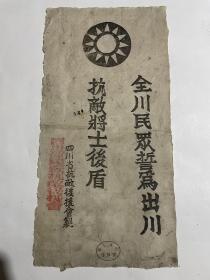 全川民眾誓爲出川
抗敵將士後盾
四川省抗敵後援會製